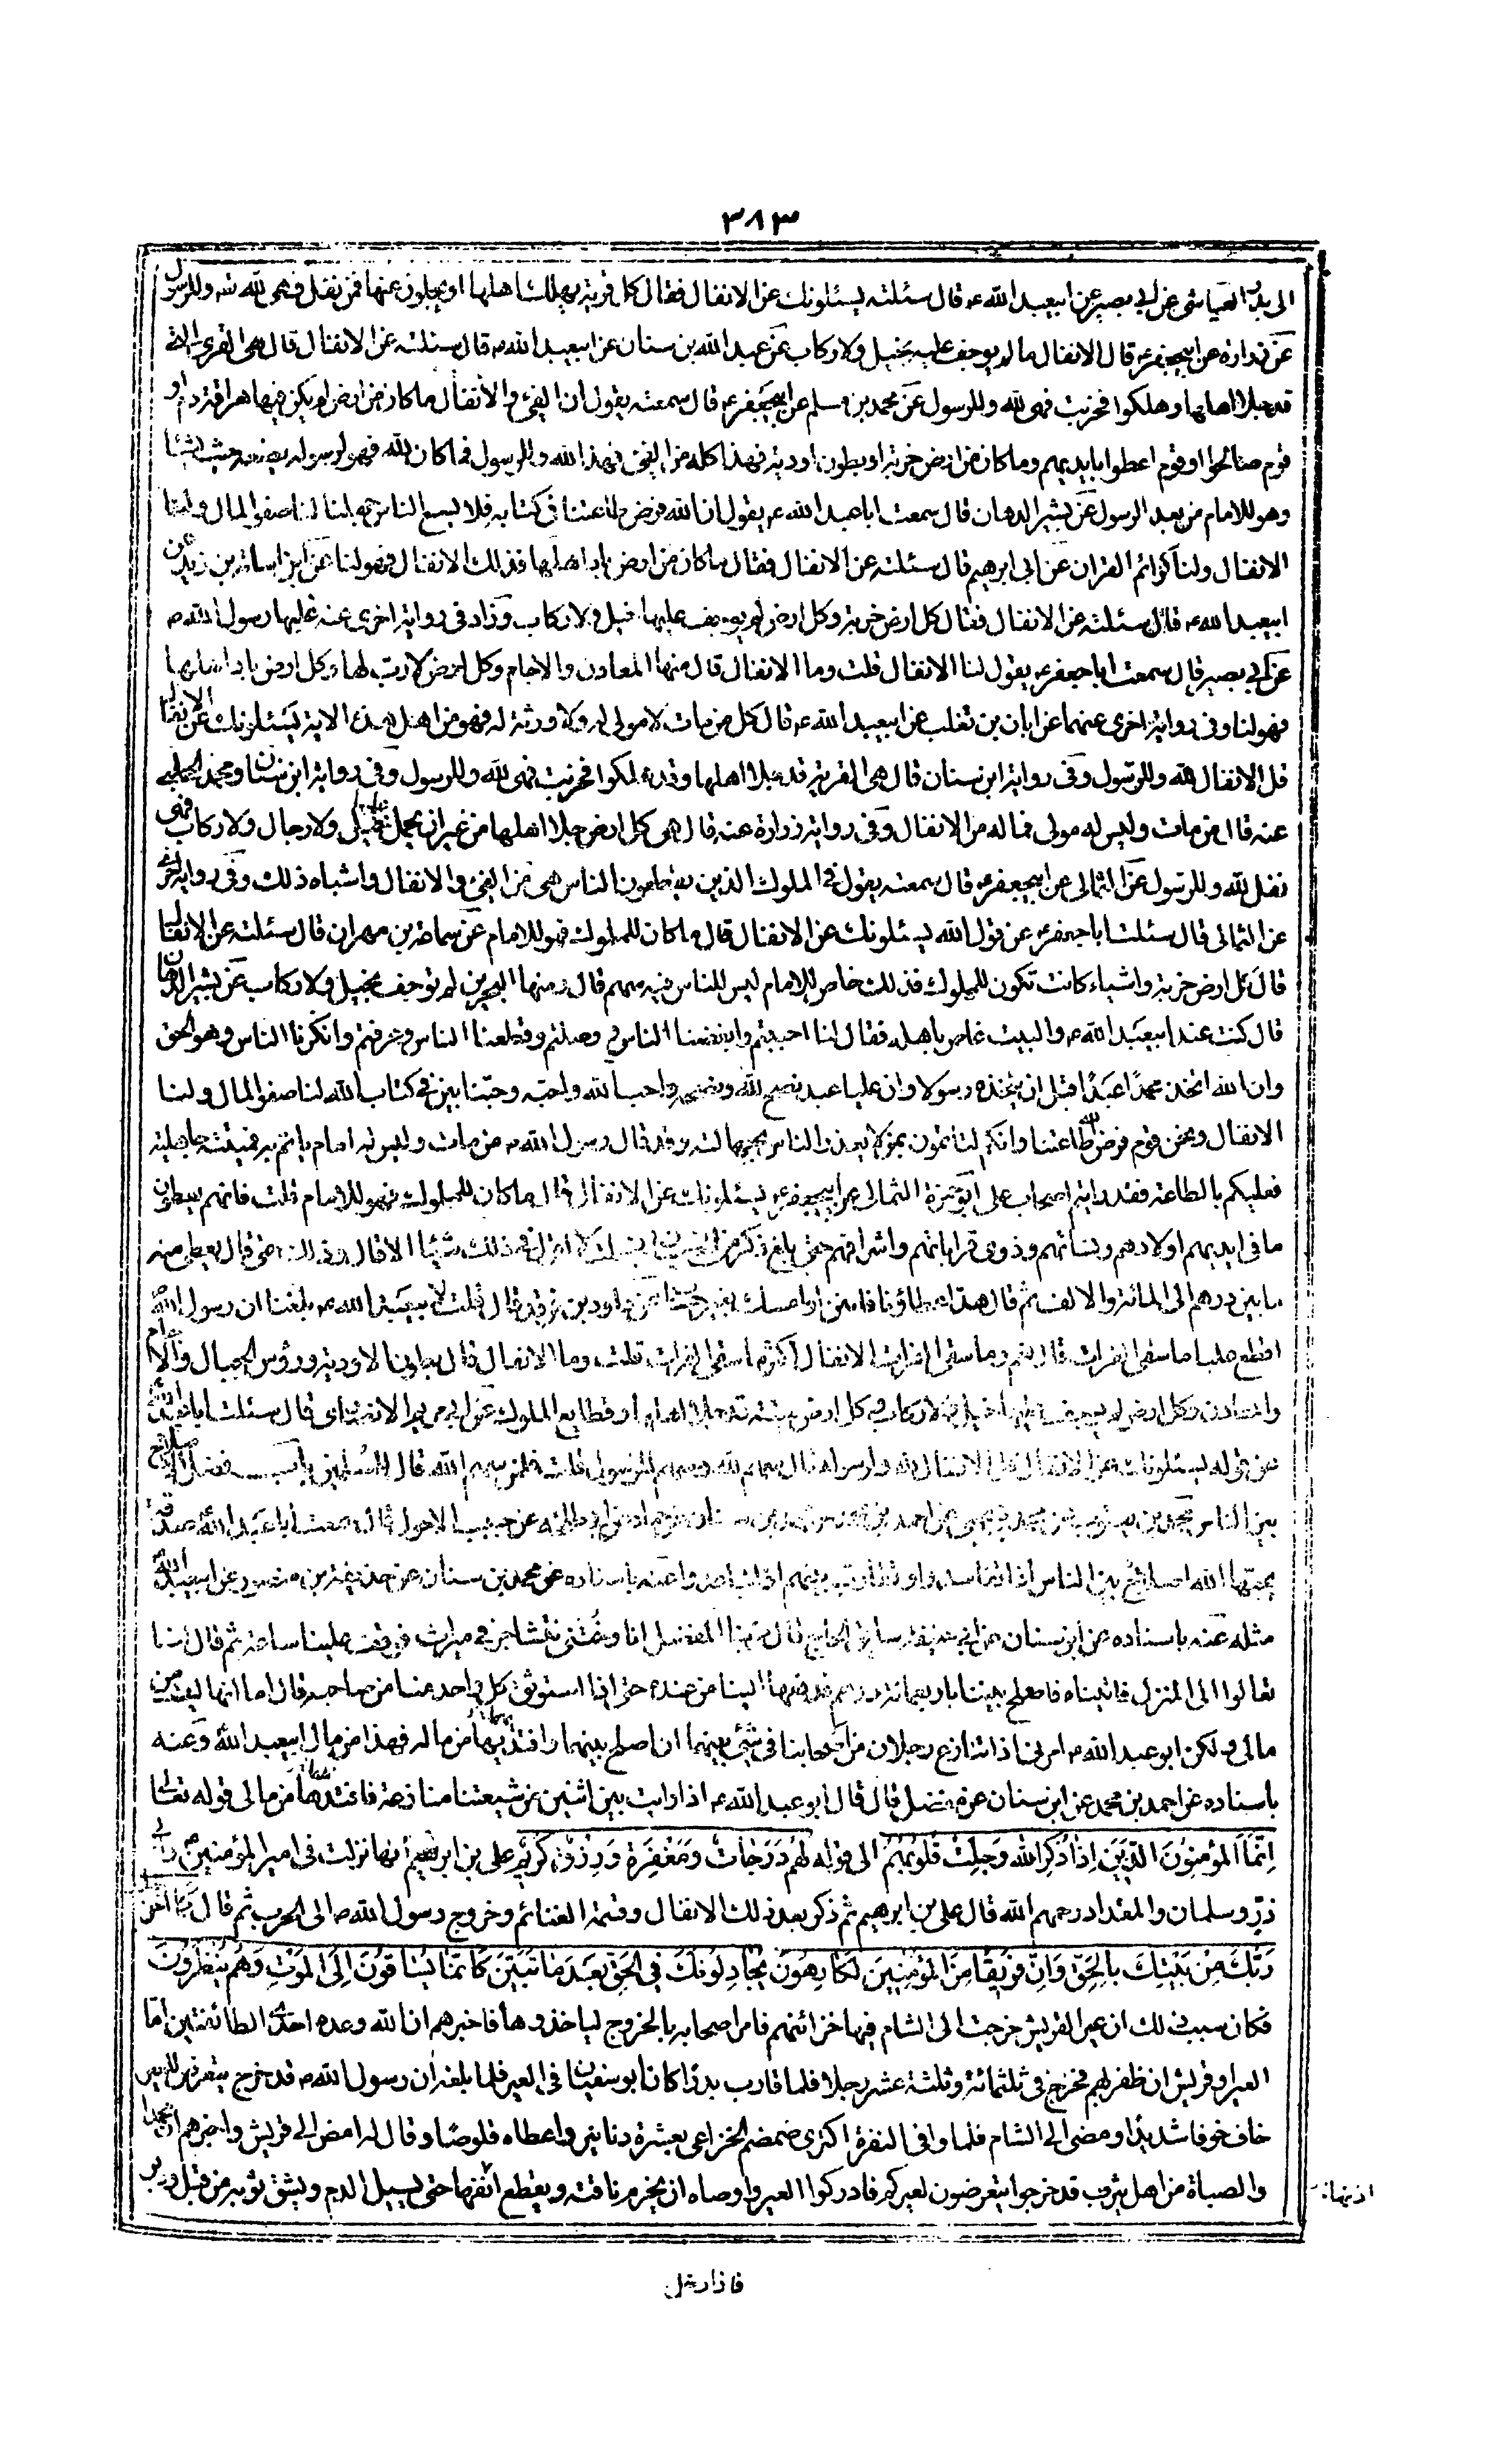 ٣٨٣
الى بدر العياشي عن ابي بصير عن ابيعبد الله ع قال سئلته يسئلونك عن الانفال فقال كل قرية يهلك اهلها او يجلون عنها فمن نفل فهى لله وللرسول
عن زرارة عن ابيجعفر ع قال الانفال مالم يوجف عليه بخيل ولا ركاب عن عبد الله بن سنان عن ابيعبد الله ع قال سئلته عن الانفال قال هى القرى التى
قد جلا اهلها وهلكوا فخربت فهى لله وللرسول عن محمد بن مسلم عن ابيجعفر ع قال سمعته يقول ان الفئ والانفال ما كان من ارض لم يكن فيها هراقة دم او
قوم صالحوا او قوم اعطوا بايديهم وما كان من ارض خربة او بطون اودية فهذا كله من الفئ فهذا لله وللرسول فما كان لله فهو لرسوله يضعه حيث يشا
وهو للامام من بعد الرسول عن بشير الدهان قال سمعت ابا عبد الله ع يقول ان الله فرض طاعتنا فى كتابه فلا يسع الناس جهلنا لنا صفو المال ولنا
الانفال ولنا كرائم القران عن ابى ابرهيم قال سئلته عن الانفال فقال ما كان من ارض باد اهلها فذلك الانفال فهو لنا عن ابن اسامة بن زيد عن
ابيعبد الله ع قال سئلته عن الانفال فقال كل ارض خربة وكل ارض لم يوجف عليها خيل ولا ركاب وزاد فى رواية اخرى عنه غلبها رسول الله ص
عن ابى بصير قال سمعت ابا جعفر ع يقول لنا الانفال قلت وما الانفال قال منها المعادن والاجام وكل ارض لا رب لها وكل ارض باد اهلها
فهو لنا وفى رواية اخرى عنهما عن ابان بن تغلب عن ابيعبد الله ع قال كل من مات لا مولى له ولا ورثة له فهو من اهل هذه الاية يسئلونك عن الانفال
قل الانفال لله وللرسول وفى رواية ابن سنان قال هى القرية قد جلا اهلها وقد هلكوا فخربت فهى لله وللرسول وفى رواية ابن سنان ومحمد الحلبى
عنه قال من مات وليس له مولى فماله من الانفال وفى رواية زرارة عنه قال هى كل ارض جلا اهلها من غير ان يحمل عليها خيل ولا رجال ولا ركاب فهى
نفل لله وللرسول عن الثمالى عن ابيجعفر ع قال سمعته يقول فى الملوك الذين يقطعون الناس هى من الفئ والانفال واشباه ذلك وفى رواية اخرى
عن الثمالى قال سئلت ابا جعفر ع عن قول الله يسئلونك عن الانفال قال ما كان للملوك فهو للامام عن سماعة بن مهران قال سئلته عن الانفال
قال كل ارض خربة واشياء كانت تكون للملوك فذلك خاص للامام ليس للناس فيه سهم قال ومنها البحرين لم توجف بخيل ولا ركاب عن بشير الدهان
قال كنت عند ابيعبد الله ع والبيت غاص باهله فقال لنا احببتم وابغضنا الناس ووصلتم وقطعنا الناس وعرفتم وانكرنا الناس وهو الحق
وان الله اتخذ محمدا عبدا قبل ان يتخذه رسولا وان عليا عبد نصح لله ونصحه واحب الله واحبه وحبنا بين فى كتاب الله لنا صفو المال ولنا
الانفال ونحن قوم فرض الله طاعتنا وانكم لتاتمون بمن لا يعذر الناس بجهالته وقد قال رسول الله ص من مات وليس له امام ياتم به فميتته جاهلية
فعليكم بالطاعة فقد رايتم اصحاب على ابو حمزة الثمالى عن ابيجعفر ع يسئلونك عن الانفال قال ما كان للملوك فهو للامام قلت فانهم يعطون
ما فى ايديهم اولادهم ونسائهم وذوى قراباتهم واشرافهم حتى بلغ ذكر من الخصيان فجعلت لا اقول فى ذلك شيئا الا قال وذلك حتى قال يعطى منه
ما بين درهم الى المائة والالف ثم قال هذا عطاؤنا فامنن او امسك بغير حساب عن داود بن فرقد قال قلت لابيعبد الله ع بلغنا ان رسول الله ص
اقطع عليا ما سقى الفرات قال نعم وما سقى الفرات الانفال اكثر ما سقى الفرات قلت وما الانفال قال بطون الاودية ورؤس الجبال والاجام
والمعادن وكل ارض لم يوجف عليها خيل ولا ركاب وكل ارض ميتة قد جلا اهلها وقطايع الملوك عن ابى مريم الانصارى قال سئلت ابا عبد الله
عن قوله يسئلونك عن الانفال قل الانفال لله والرسول قال سهم لله وسهم للرسول قلت فلمن سهم الله قال للمسلمين باب فضل الاصلاح
بين الناس محمد بن يعقوب عن محمد بن يحيى عن احمد بن محمد عن محمد بن سنان عن حماد بن ابى طلحة عن حبيب الاحول قال سمعت ابا عبد الله ع صدقة
يحبها الله اصلاح بين الناس اذا تفاسدوا وتقارب بينهم اذا تباعدوا عنه باسناده عن محمد بن سنان عن حذيفة بن منصور عن ابيعبد الله
مثله عنه باسناده عن ابن سنان عن ابى حنيفة سابق الحاج قال مر بنا المفضل انا وختنى نتشاجر فى ميراث فوقف علينا ساعة ثم قال لنا
تعالوا الى المنزل فاتيناه فاصلح بيننا باربعمائة درهم فدفعها الينا من عنده حتى اذا استوثق كل واحد منا من صاحبه قال اما انها ليست من
مالى ولكن ابو عبد الله ع امرنى اذا تنازع رجلان من اصحابنا فى شئ بينهما ان اصلح بينهما وافتديهما من ماله فهذا من مال ابيعبد الله وعنه
باسناده عن احمد بن محمد عن ابن سنان عن مفضل قال قال ابو عبد الله ع اذا رايت بين اثنين من شيعتنا منازعة فافتدها من مالى قوله تعالى
اِنَّمَا الْمُؤْمِنُونَ الَّذِينَ اِذَا ذُكِرَ اللهُ وَجِلَتْ قُلُوبُهُمْ الى قوله لَهُمْ دَرَجَاتٌ وَمَغْفِرَةٌ وَرِزْقٌ كَرِيمٌ على بن ابرهيم انها نزلت فى امير المؤمنين ع وابى
ذر وسلمان والمقداد رحمهم الله قال على بن ابرهيم ثم ذكر بعد ذلك الانفال وقسمة الغنائم وخروج رسول الله ص الى الحرب ثم قال كَمَا اَخْرَجَكَ
رَبُّكَ مِنْ بَيْتِكَ بِالْحَقِّ وَاِنَّ فَرِيقًا مِنَ الْمُؤْمِنِينَ لَكَارِهُونَ يُجَادِلُونَكَ فِى الْحَقِّ بَعْدَ مَا تَبَيَّنَ كَاَنَّمَا يُسَاقُونَ اِلَى الْمَوْتِ وَهُمْ يَنْظُرُونَ
فكان سبب ذلك ان عير القريش خرجت الى الشام فيها خزائنهم فامر اصحابه بالخروج لياخذوها فاخبرهم ان الله وعده احدى الطائفتين اما
العير او قريش ان ظفر بهم فخرج فى ثلثمائة وثلثة عشر رجلا فلما قارب بدرا كان ابو سفيان فى العير فلما بلغه ان رسول الله ص قد خرج يتعرض للعير
خاف خوفا شديدا ومضى الى الشام فلما وافى النقرة اكترى ضمضم الخزاعى بعشرة دنانير واعطاه قلوصا وقال له امض الى قريش واخبرهم ان محمدا
والصباة من اهل يثرب قد خرجوا يتعرضون لعيركم فادركوا العير واوصاه ان يخرم ناقته ويقطع اذنها حتى يسيل الدم ويشق ثوبه من قبل ودبر
اذنها
فاذا دخل